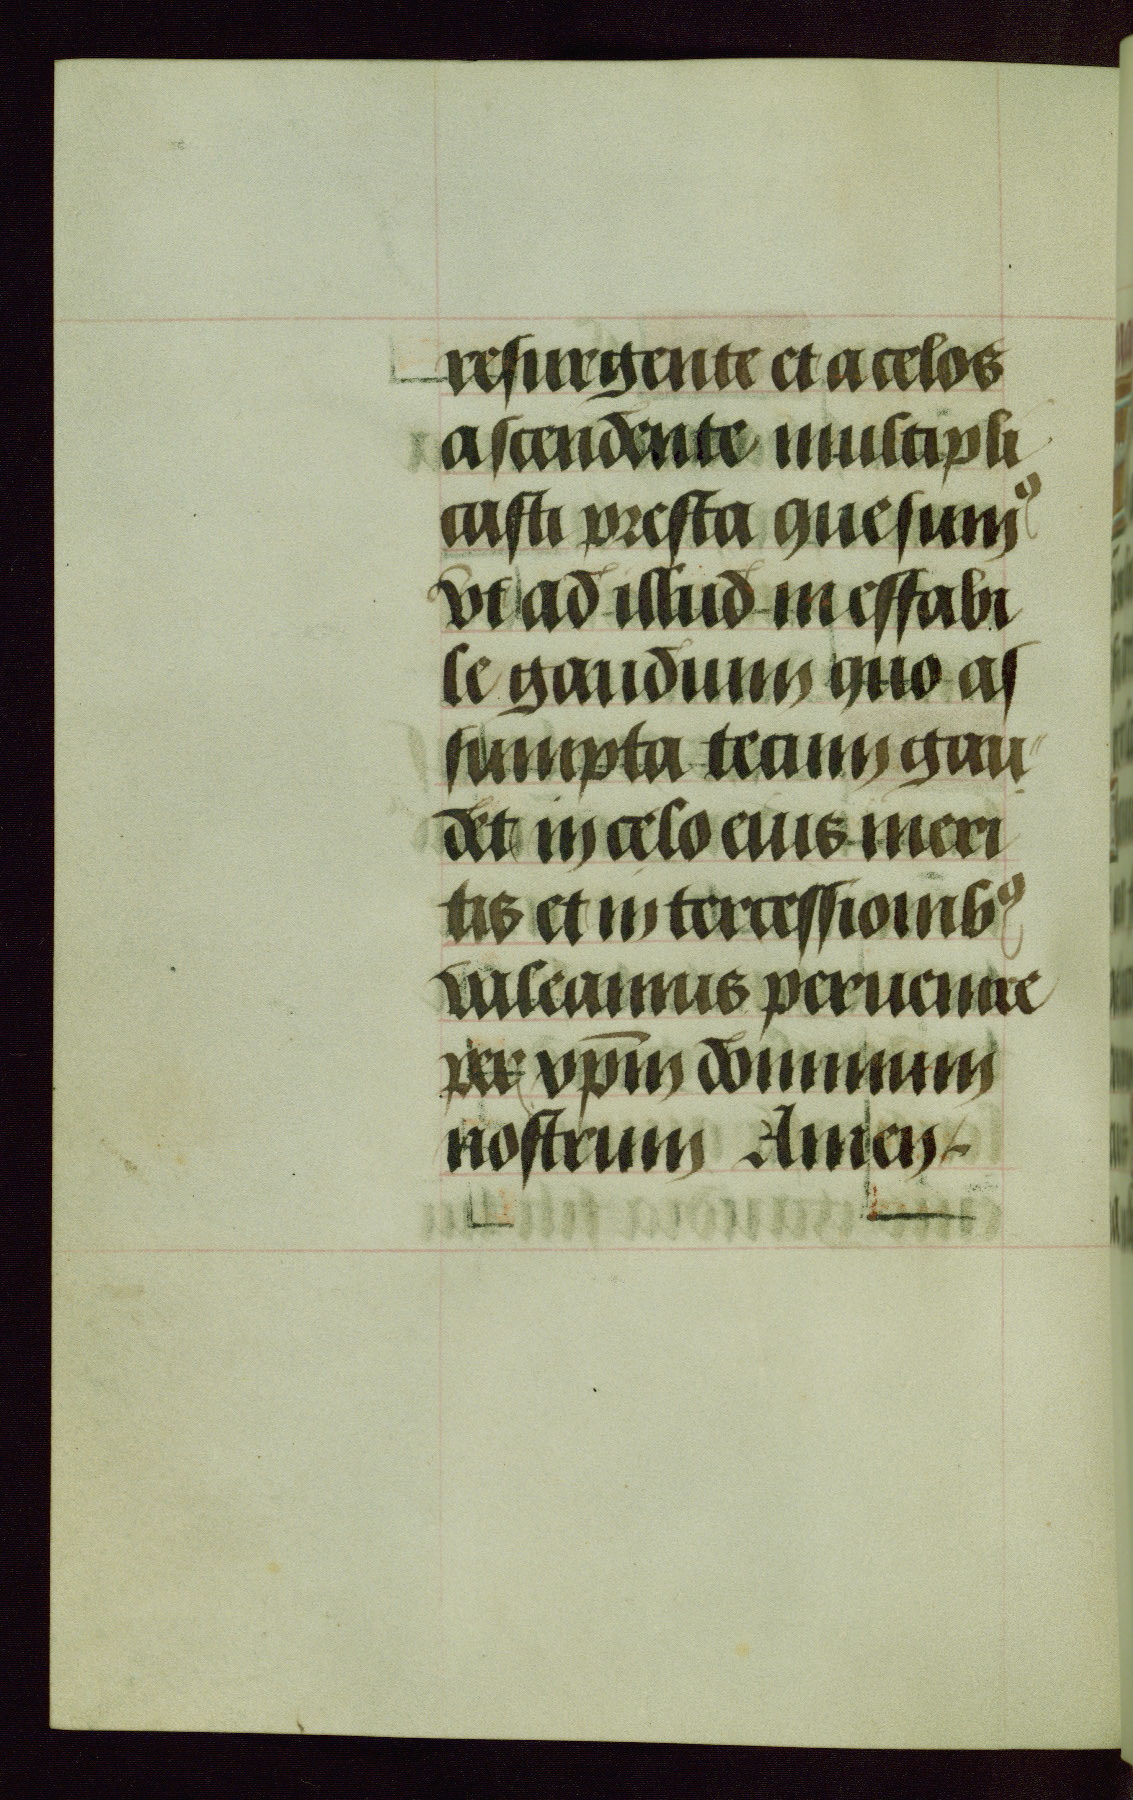 resurgente et a celos
ascendente multipli
casti presta quesumꝰ
vt ad illud ineffabi
le gaudium quo as
sumpta tecum gau
det in celo eius meri
tis et intercessionibꝰ
valeamus peruenire
per xp̄m dominum
nostrum Amen